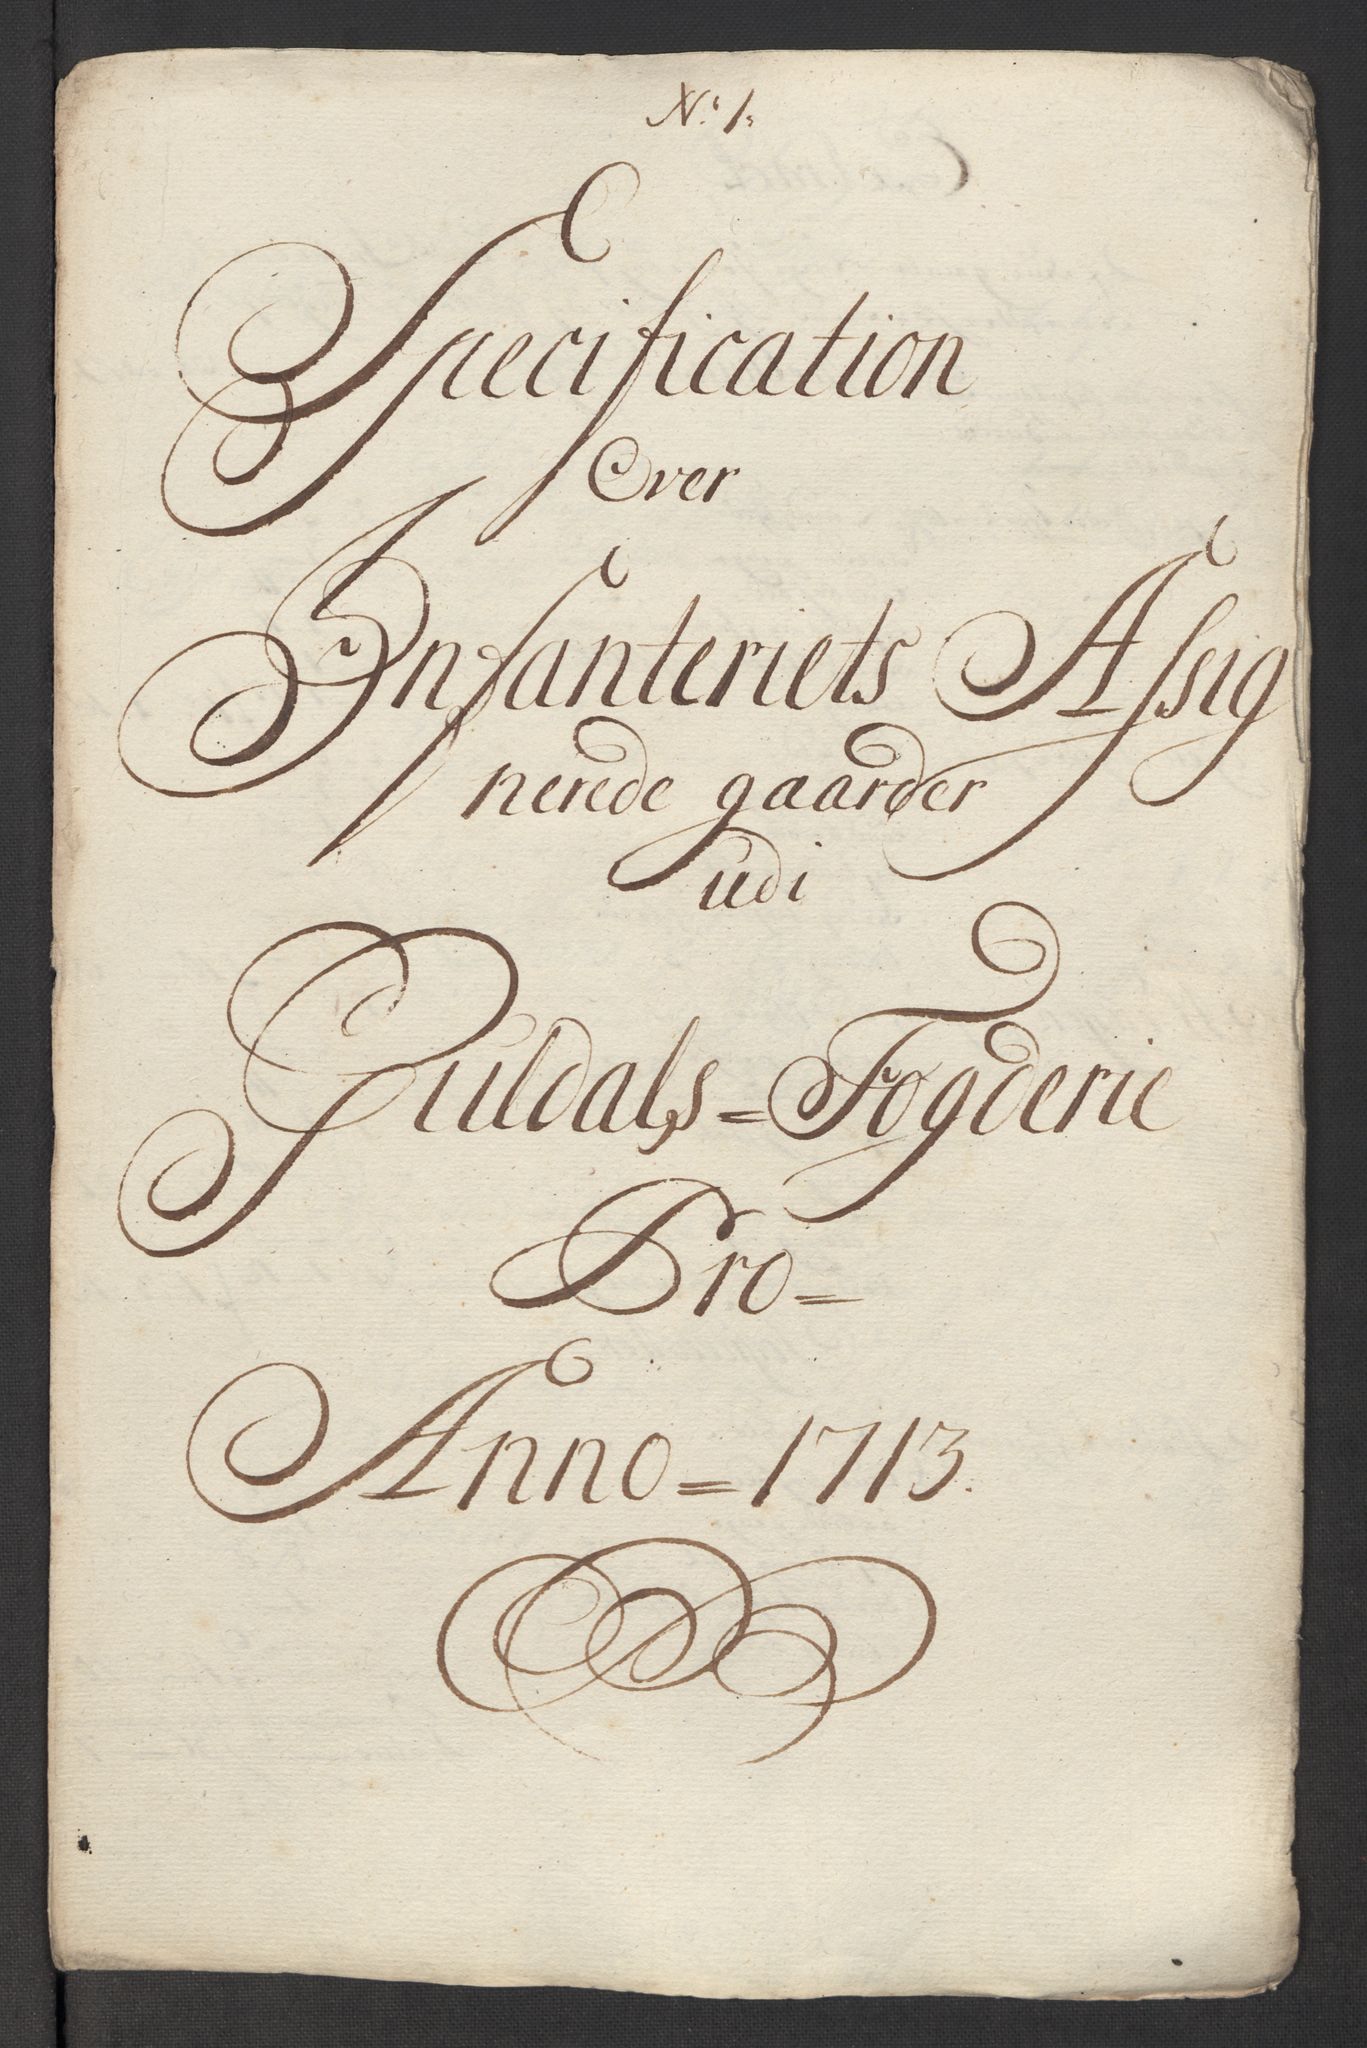 No. 1.
Specification
Over
Infanteriets Assig
nerede gaarder
udi
Guldals = Fogderie
Pro =
Anno = 1713.